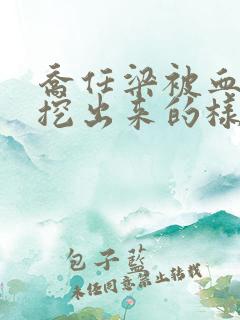 乔任梁被血
挖出来的樣
包子藍
未经同意禁止转载